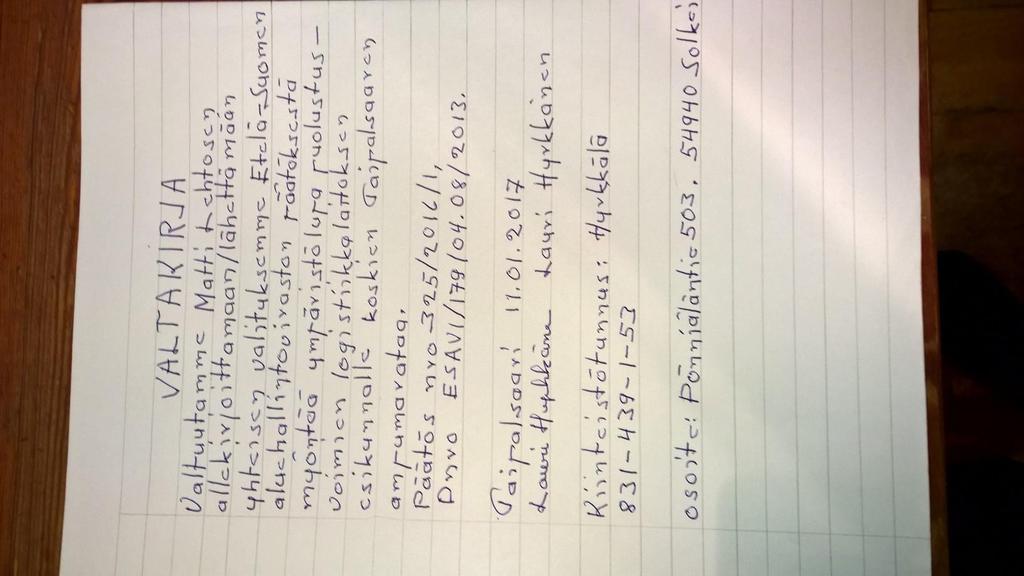 VALTAKIRJA
Valtuutamme Matti Lehtosen
allekirjoittamaan/lähettämään
yhteisen valituksemme Etelä-Suomen
aluehallintoviraston päätöksestä
myöntää ympäristölupa puolustus-
voimien logistiikkalaitoksen
esikunnalle koskien Taipalsaaren
ampumarataa.
Päätös nro 325/2016/1,
Dnro ESAVI/179/04.08/2013.
Taipalsaari 11.01.2017
Lauri Hyrkkänen Lauri Hyrkkänen
Kiinteistötunnus: Hyrkkälä
831-439-1-53
osoite: Pönniäläntie 503. 54940 Solkei